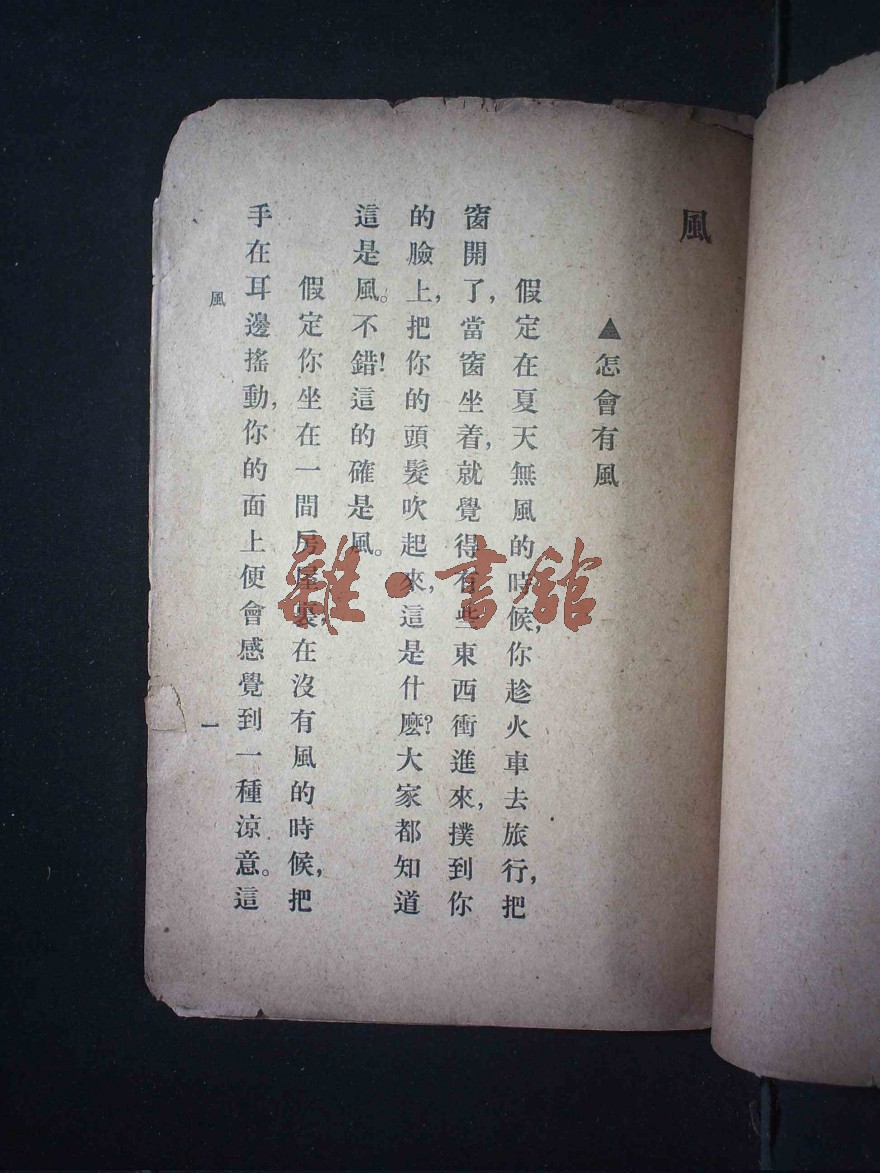 風
▲怎會有風
假定在夏天無風的時候，你趁火車去旅行，把
窗開了，當窗坐着，就覺得有些東西衝進來，撲到你
的臉上，把你的頭髮吹起來，這是什麼？大家都知道
這是風。不錯！這的確是風。
假定你坐在一間房屋裏，在沒有風的時候，把
手在耳邊搖動，你的面上便會感覺到一種涼意。這
風
一
雜·書館